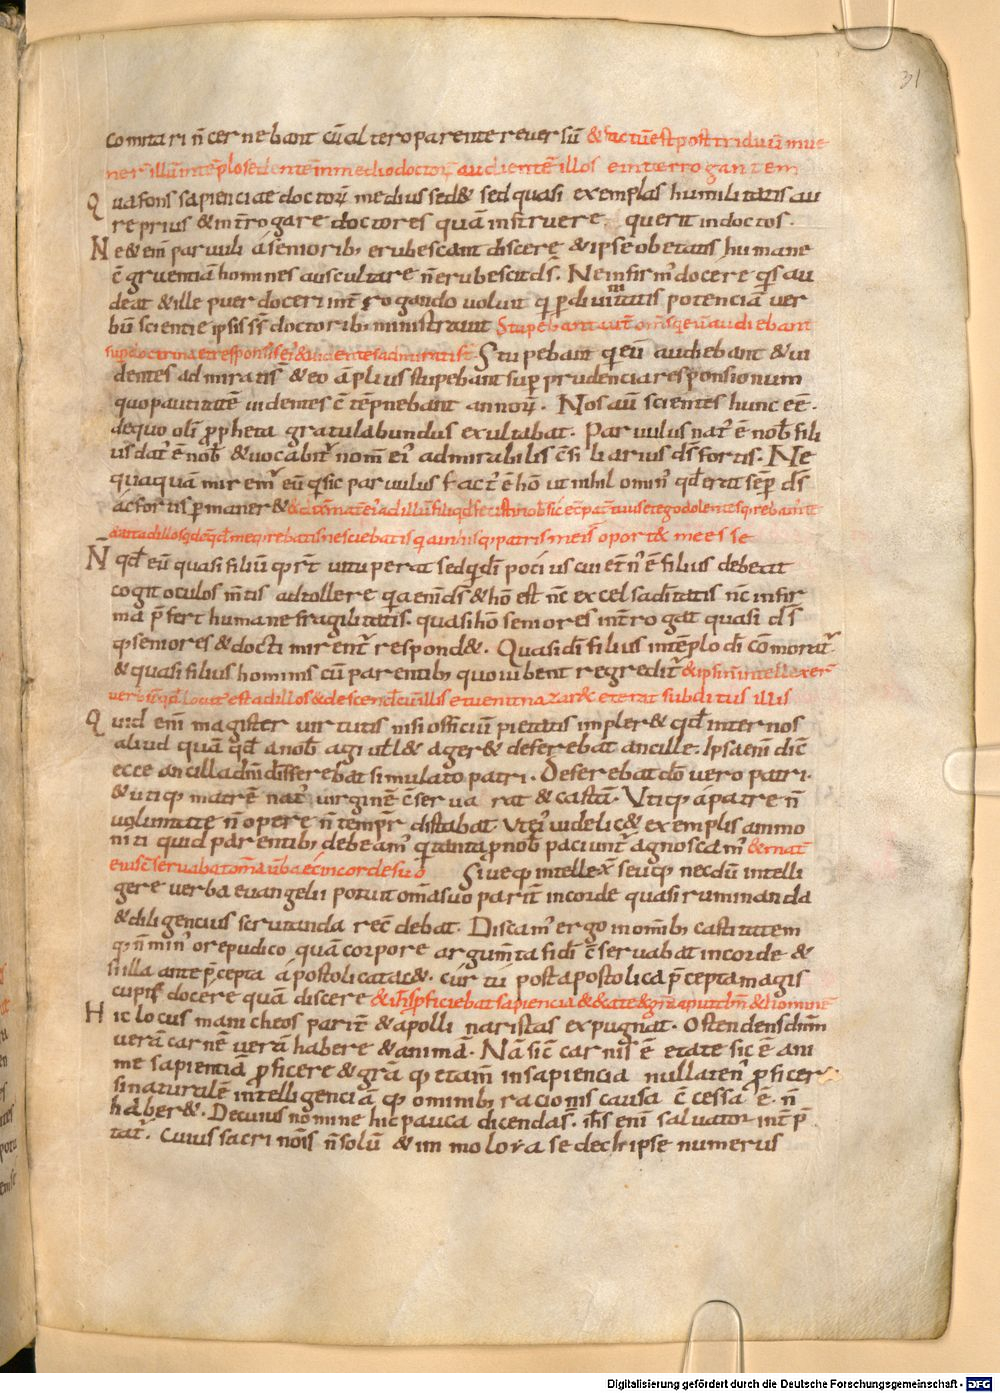 31
comitari n̄ cernebant cū altero parente reversū & factū est post triduū invene
ner illū in tēplo sedentē in medio doctorꝝ audientē illos & interrogantem
Quasi fons sapienciae doctorꝝ medius sed& sed quasi exemplar humilitatis au
re prius & int̄rogare doctores quā instruere querit indoctos.
Ne & em̄ parvuli a senioribꝰ erubescant discere & ipse obetatis humane
c̄gruentiā homines auscultare n̄ erubescit d̄s. Ne infirmꝰ docere qͥs au
deat & ille puer doceri int̄rogando voluit qͥ ꝑ divinitatis potenciā ver
bū scientie ipsis s̄s doctoribꝰ ministravit Stupebant aut̄ om̄s qͥ eū audiebant
sup doctrina et responsis eiꝰ & videntes admirati st̄ Stupebant qͥ eū audiebant & vi
dentes admiratis & eo āplius stupebant sup̄ prudencia responsionum
quo pauitatē videntes c̄tēpnebant annorꝝ. Nos aū scientes hunc eē.
de quo olī ꝓpheta gratulabundus exultabat. Parvulus natꝰ ē nob̄ fili
us datꝰ ē nob̄ & vocabitꝰ nomē eiꝰ admirabilis c̄siliarius d̄s fortis. Ne
quaquā miremꝰ eū qͥ sic parvulus factꝰ ē hō ut nihil ominꝰ qd̄ erat semꝑ d̄s
ac fortis ꝑmaner& & dix̄ mat̄ eiꝰ ad illū fili qͥd fecisti nob̄ sic ecce pat̄ tuus et ego dolentes qͥrebamꝰ te
& ait ad illos qͥd ē qd̄ me qͥrebatis nesciebatis qͥa in his qͥ patris mei s̄ oport& me esse
N̄ qd̄ eū quasi filiū qͥrt̄ vituperat sed quid̄ pocius cui et̄nꝰ ē filius debeat
cogit oculos m̄tis adtollere qͥa enī d̄s & hō est nc̄ excelsa ditatis nc̄ infir
ma p̄fert humane fragilitatis. quasi hō seniores int̄rogat quasi d̄s
qͥ seniores & docti mirent̄ respond&. Quasi dī filius in tēplo dī cōmoratꝰ
& quasi filius hominis cū parentibꝰ quo iubent regreditꝰ & ipsi n̄ intellexerꝰ
verbū qd̄ locutꝰ est ad illos & descend̄ cū illis et venit nazar& et erat subditus illis
Quid em̄ magister virtutis nisi officiū pietatis impler& qd̄ inter nos
aliud quā qd̄ a nob̄ agi vell& ager& deferebat ancille. Ipsa em̄ dic̄
ecce ancilla dn̄i differebat simulato patri. Deferebat do vero patri.
& utiqꝫ matrē natꝰ virginē c̄serva rat & castā. Utiqꝫ a patre n̄
voluntate n̄ opere n̄ temp̄r distabat. Ut eiꝰ videlic& exemplis ammo
niti quid parentibꝰ debeamꝰ qͥ tanta ꝓ nob̄ paciunt̄ agnoscamꝰ & mat̄
eiꝰ c̄servabat om̄a v̄ba ec̄ in corde suo Sive qͥ intellex̄ seu qͥ necdū intelli
gere verba evangelii potuit om̄a suo parit̄ in corde quasi ruminanda
& diligencius scrutanda rec̄debat. Discamꝰ ergo in om̄ibꝰ castitatem
qͥ n̄ minꝰ ore pudico quā corpore argum̄ta fidī c̄servabat in corde &
si illa ante p̄cepta apostolica tac&. cur tu post apostolica p̄cepta magis
cupis docere quā discere & ih̄s ꝓficiebat sapiencia & &ate & gr̄a aput dm̄ & homine
Hic locus manicheos parit̄ & apollinaristas expugnat. Ostendens dn̄m
verā carnē verā habere & animā. Nā sic̄ carnis ē etate sic ē ani
me sapientiā ꝓficere & grā qͥ etam̄ in sapiencia nullatenꝰ ꝓficerꝰ
si naturalē intelligenciā qͥ omnibꝰ racionis causa c̄cessa ē. n̄
haber&. De cuius nomine hic pauca dicendas. ih̄s enī salvator int̄p̄
tatꝰ. Cuius sacri nois n̄ solū & im molora se declripse numerus
Digitalisierung gefördert durch die Deutsche Forschungsgemeinschaft - DFG